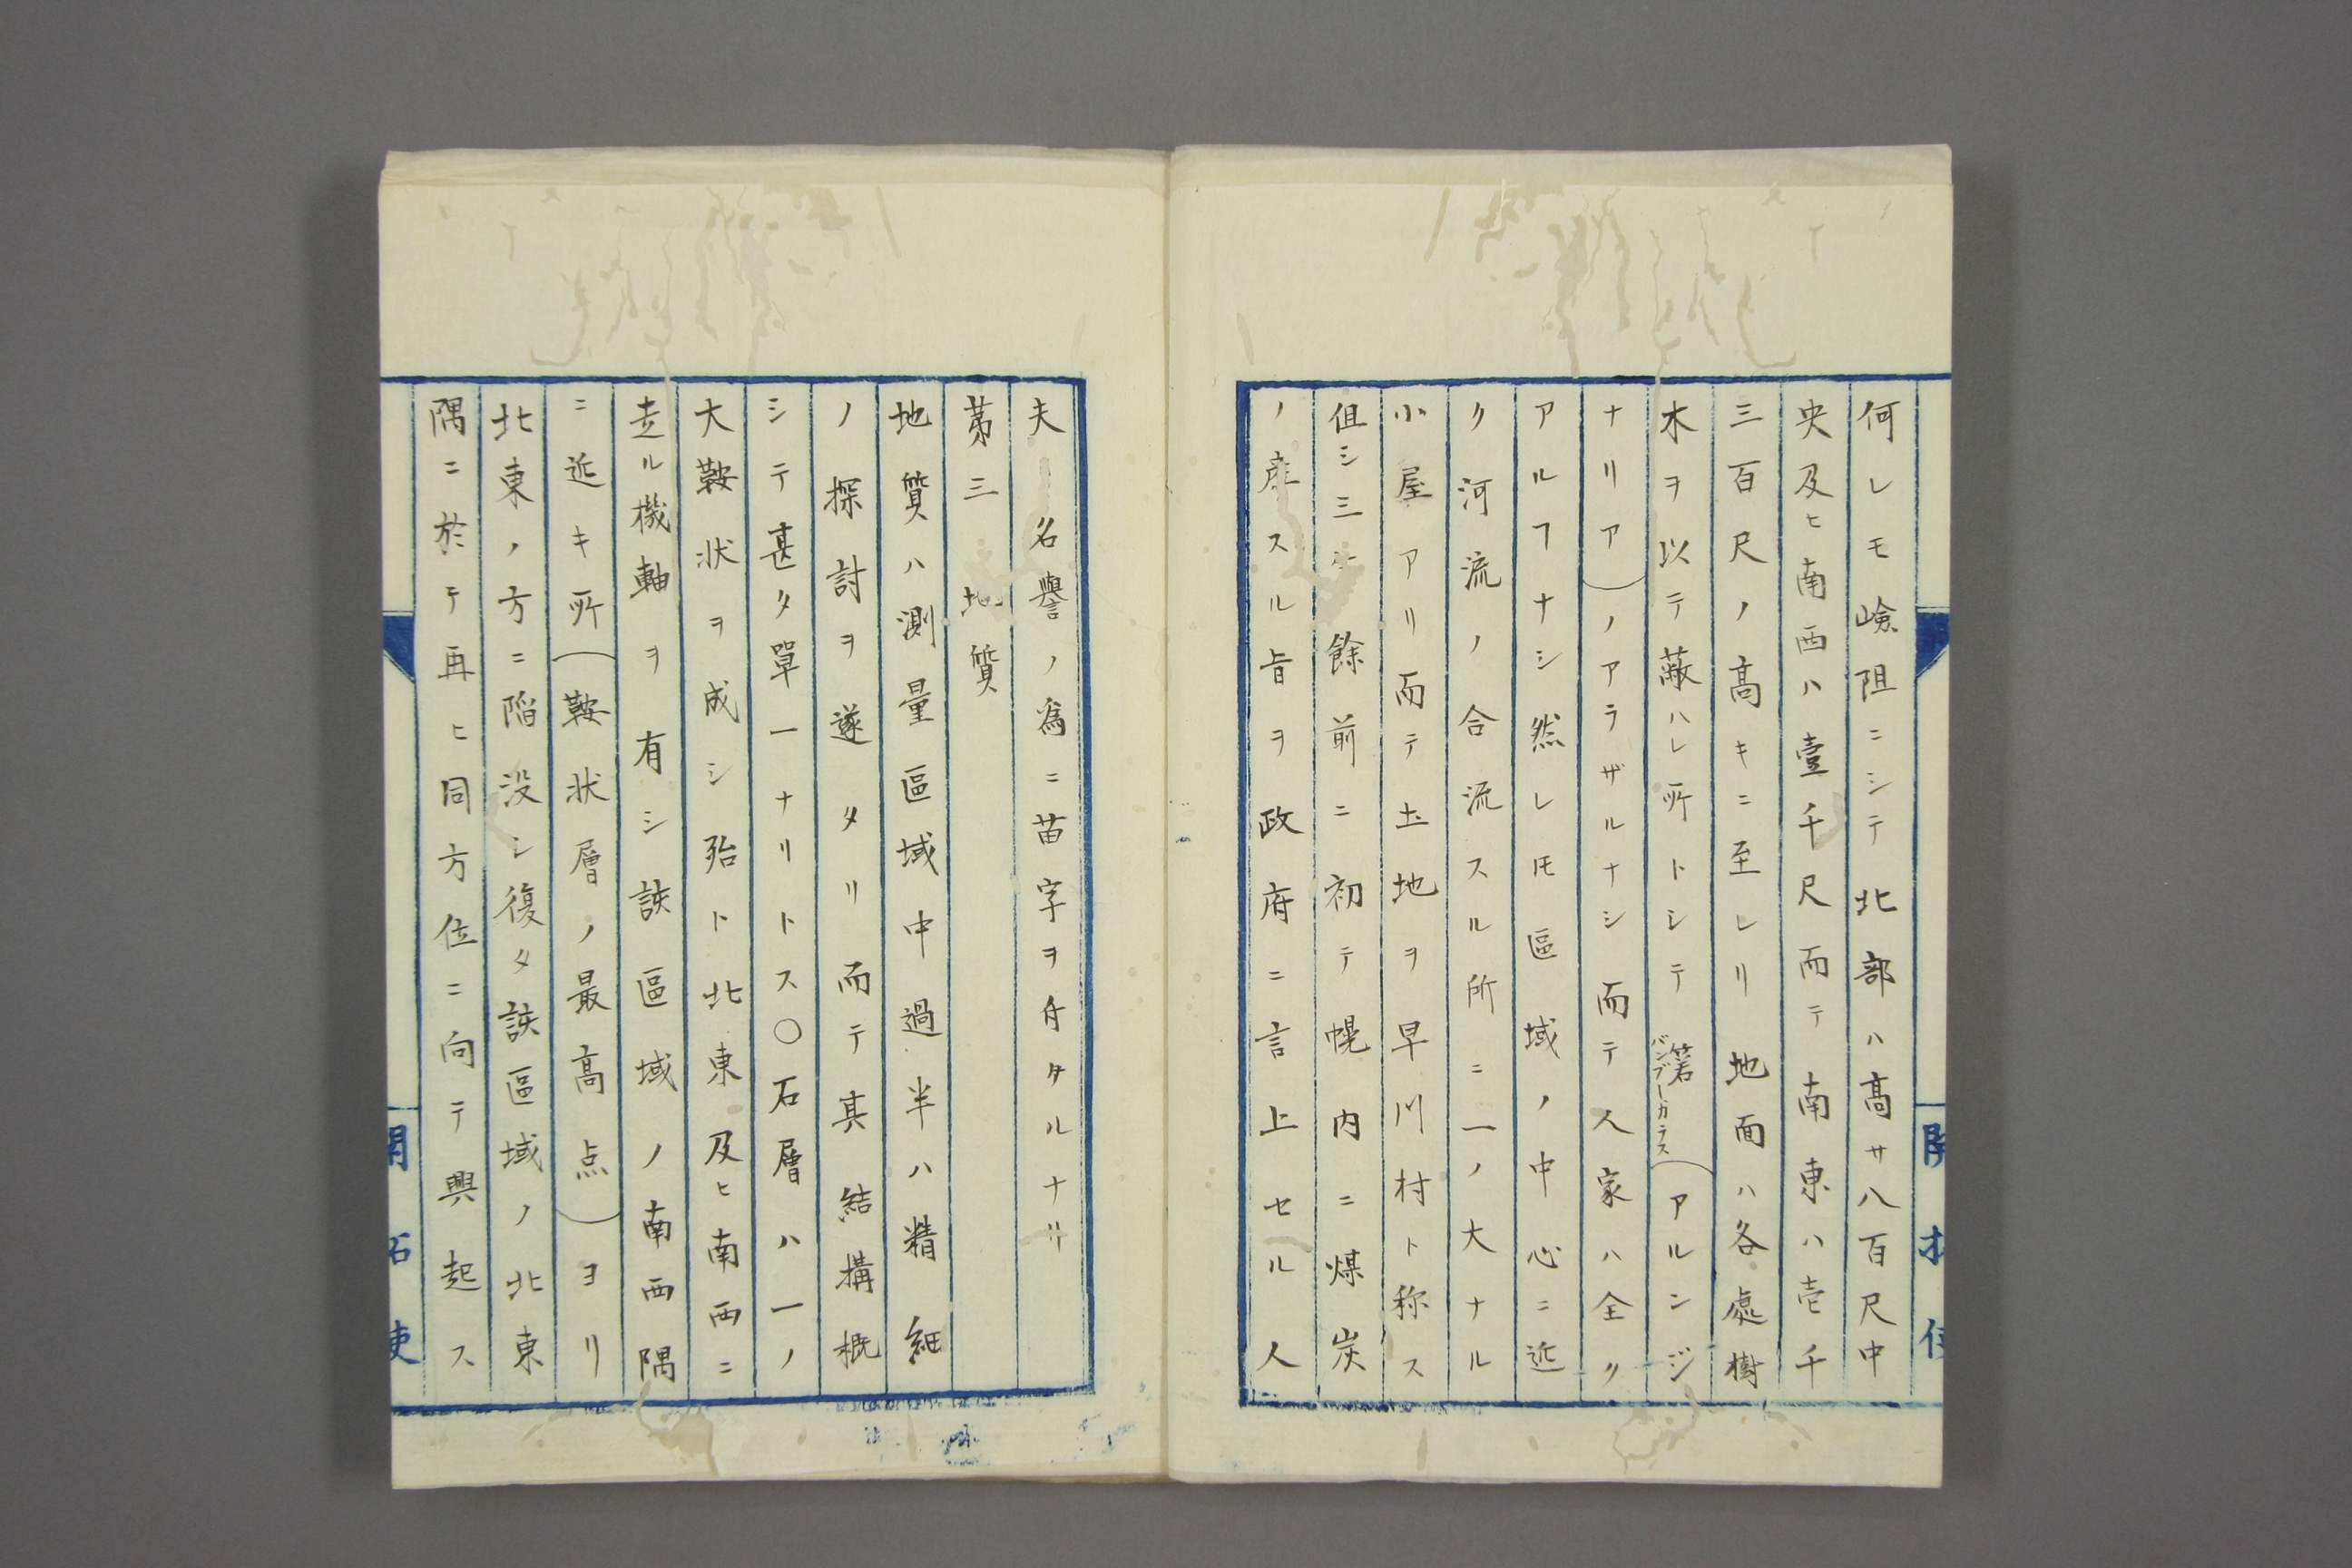 何レモ嶮阻ニシテ北部ハ高サ八百尺中
央及ヒ南西ハ壹千尺而テ南東ハ壱千
三百尺ノ高キニ至レリ地面ハ各處樹
木ヲ以テ蔽ハレ所トシテ箬バンブーガラス(アルンジ
ナリア)ノアラザルナシ而テ人家ハ全ク
アルヿナシ然レ𪜈區域ノ中心ニ近
ク河流ノ合流スル所ニ一ノ大ナル
小屋アリ而テ土地ヲ早川村ト称ス
但シ三年餘前ニ初テ幌内ニ煤炭
ノ産スル旨ヲ政府ニ言上セル人
夫ノ名譽ノ為ニ苗字ヲ付タルナリ
第三 地質
地質ハ測量區域中過半ハ精細
ノ探討ヲ遂タリ而テ其結搆概
シテ甚タ單一ナリトス○石層ハ一ノ
大鞍状ヲ成シ殆ト北東及ヒ南西ニ
走ル機軸ヲ有シ該區域ノ南西隅
ニ近キ所(鞍状層ノ最高点)ヨリ
北東ノ方ニ陥没シ復タ該區域ノ北東
隅ニ於テ再ヒ同方位ニ向テ興起ス
開拓使